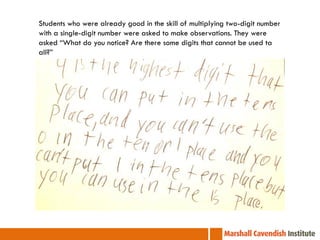 Students who were already good in the skill of multiplying two-digit number
with a single-digit number were asked to make observations. They were
asked "What do you notice? Are there some digits that cannot be used to
all?"
4 is the highest digit that
you can put in the tens
place, and you can't use the
0 in the ten or 1 place and you
can't put 1 in the tens place but
you can use in the 1s place.
Marshall Cavendish Institute